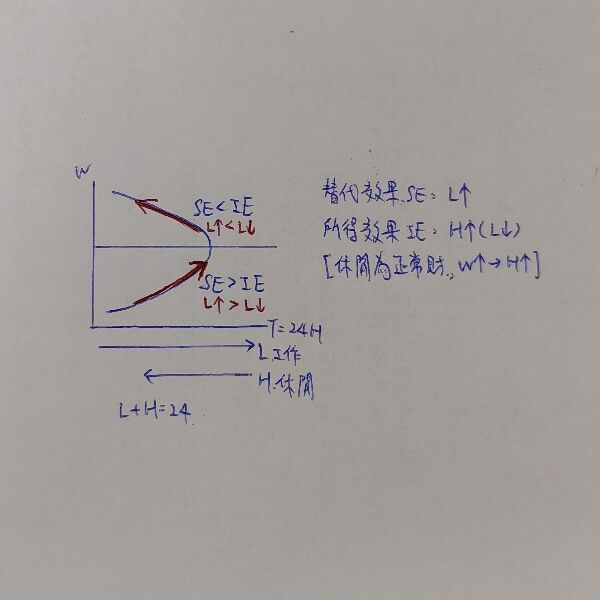 W
SE<IE
L↑<L↓
SE>IE
L↑>L↓
T=24H
L.工作
H.休閒
L+H=24
替代效果.SE: L↑
所得效果 IE: H↑(L↓)
[休閒為正常財., W↑→H↑]